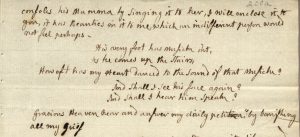 confoles his Mamma by Singing it to her, I will enclose it to
you, it has beauties in it to me, which an indifferent person would
not feel perhaps —
His very foot has Musick in't,
As he comes up the Stairs,
How oft has my Heart danced to the Sound of that Musick?
And Shall I see his face again?
And Shall I hear him Speak?
Gracious Heaven hear and answer my daily petition, by banishing
all my grief